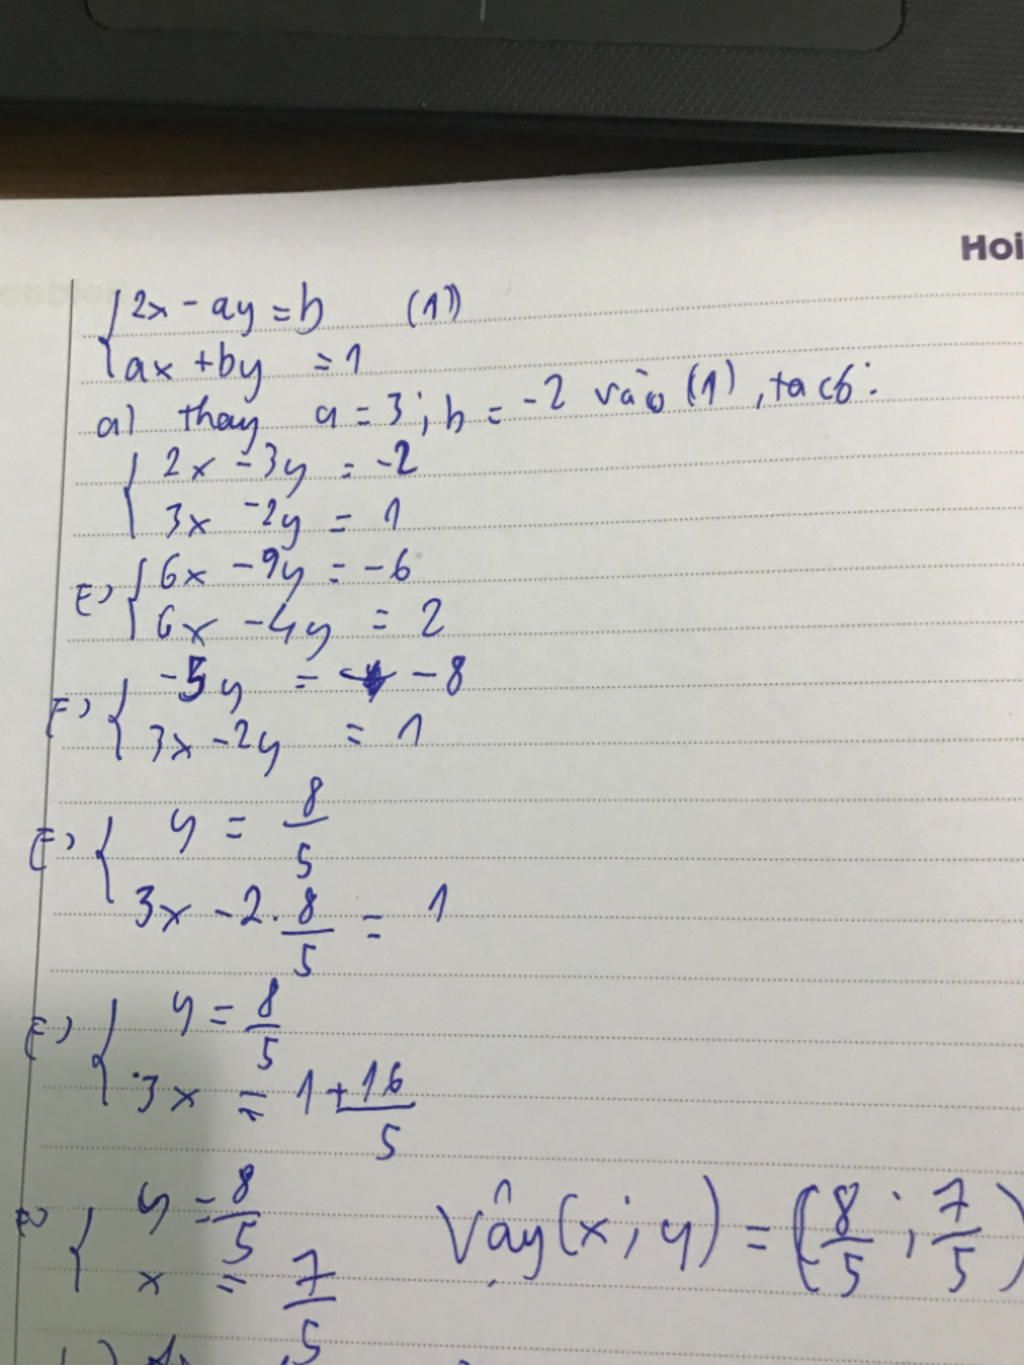 Hoi
2x - ay = b (1)
ax + by = 1
a) thay a = 3 ; b = -2 vào (1), ta có:
2x - 3y = -2
3x - 2y = 1
6x - 9y = -6
6x - 4y = 2
-5y = -8
3x - 2y = 1
y = 8/5
3x - 2. 8/5 = 1
y = 8/5
3x = 1 + 16/5
y = 8/5
x = 7/5
Vậy (x ; y) = (8/5 ; 7/5)